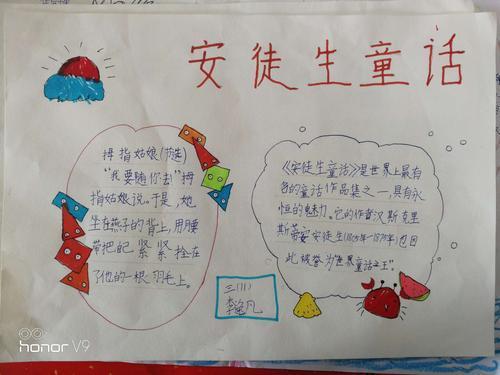 安徒生童话
拇指姑娘(节选)
"我要随你去"拇
指姑娘说。于是,她
坐在燕子的背上,用腰
带把自己紧紧拴在
了他的一根羽毛上。
《安徒生童话》是世界上最有
名的童话作品集之一,具有永
恒的魅力。它的作者汉斯克里
斯蒂安安徒生(1805年-1875年)也因
此被誉为"世界童话之王"。
三(11)
李逸凡
honor V9